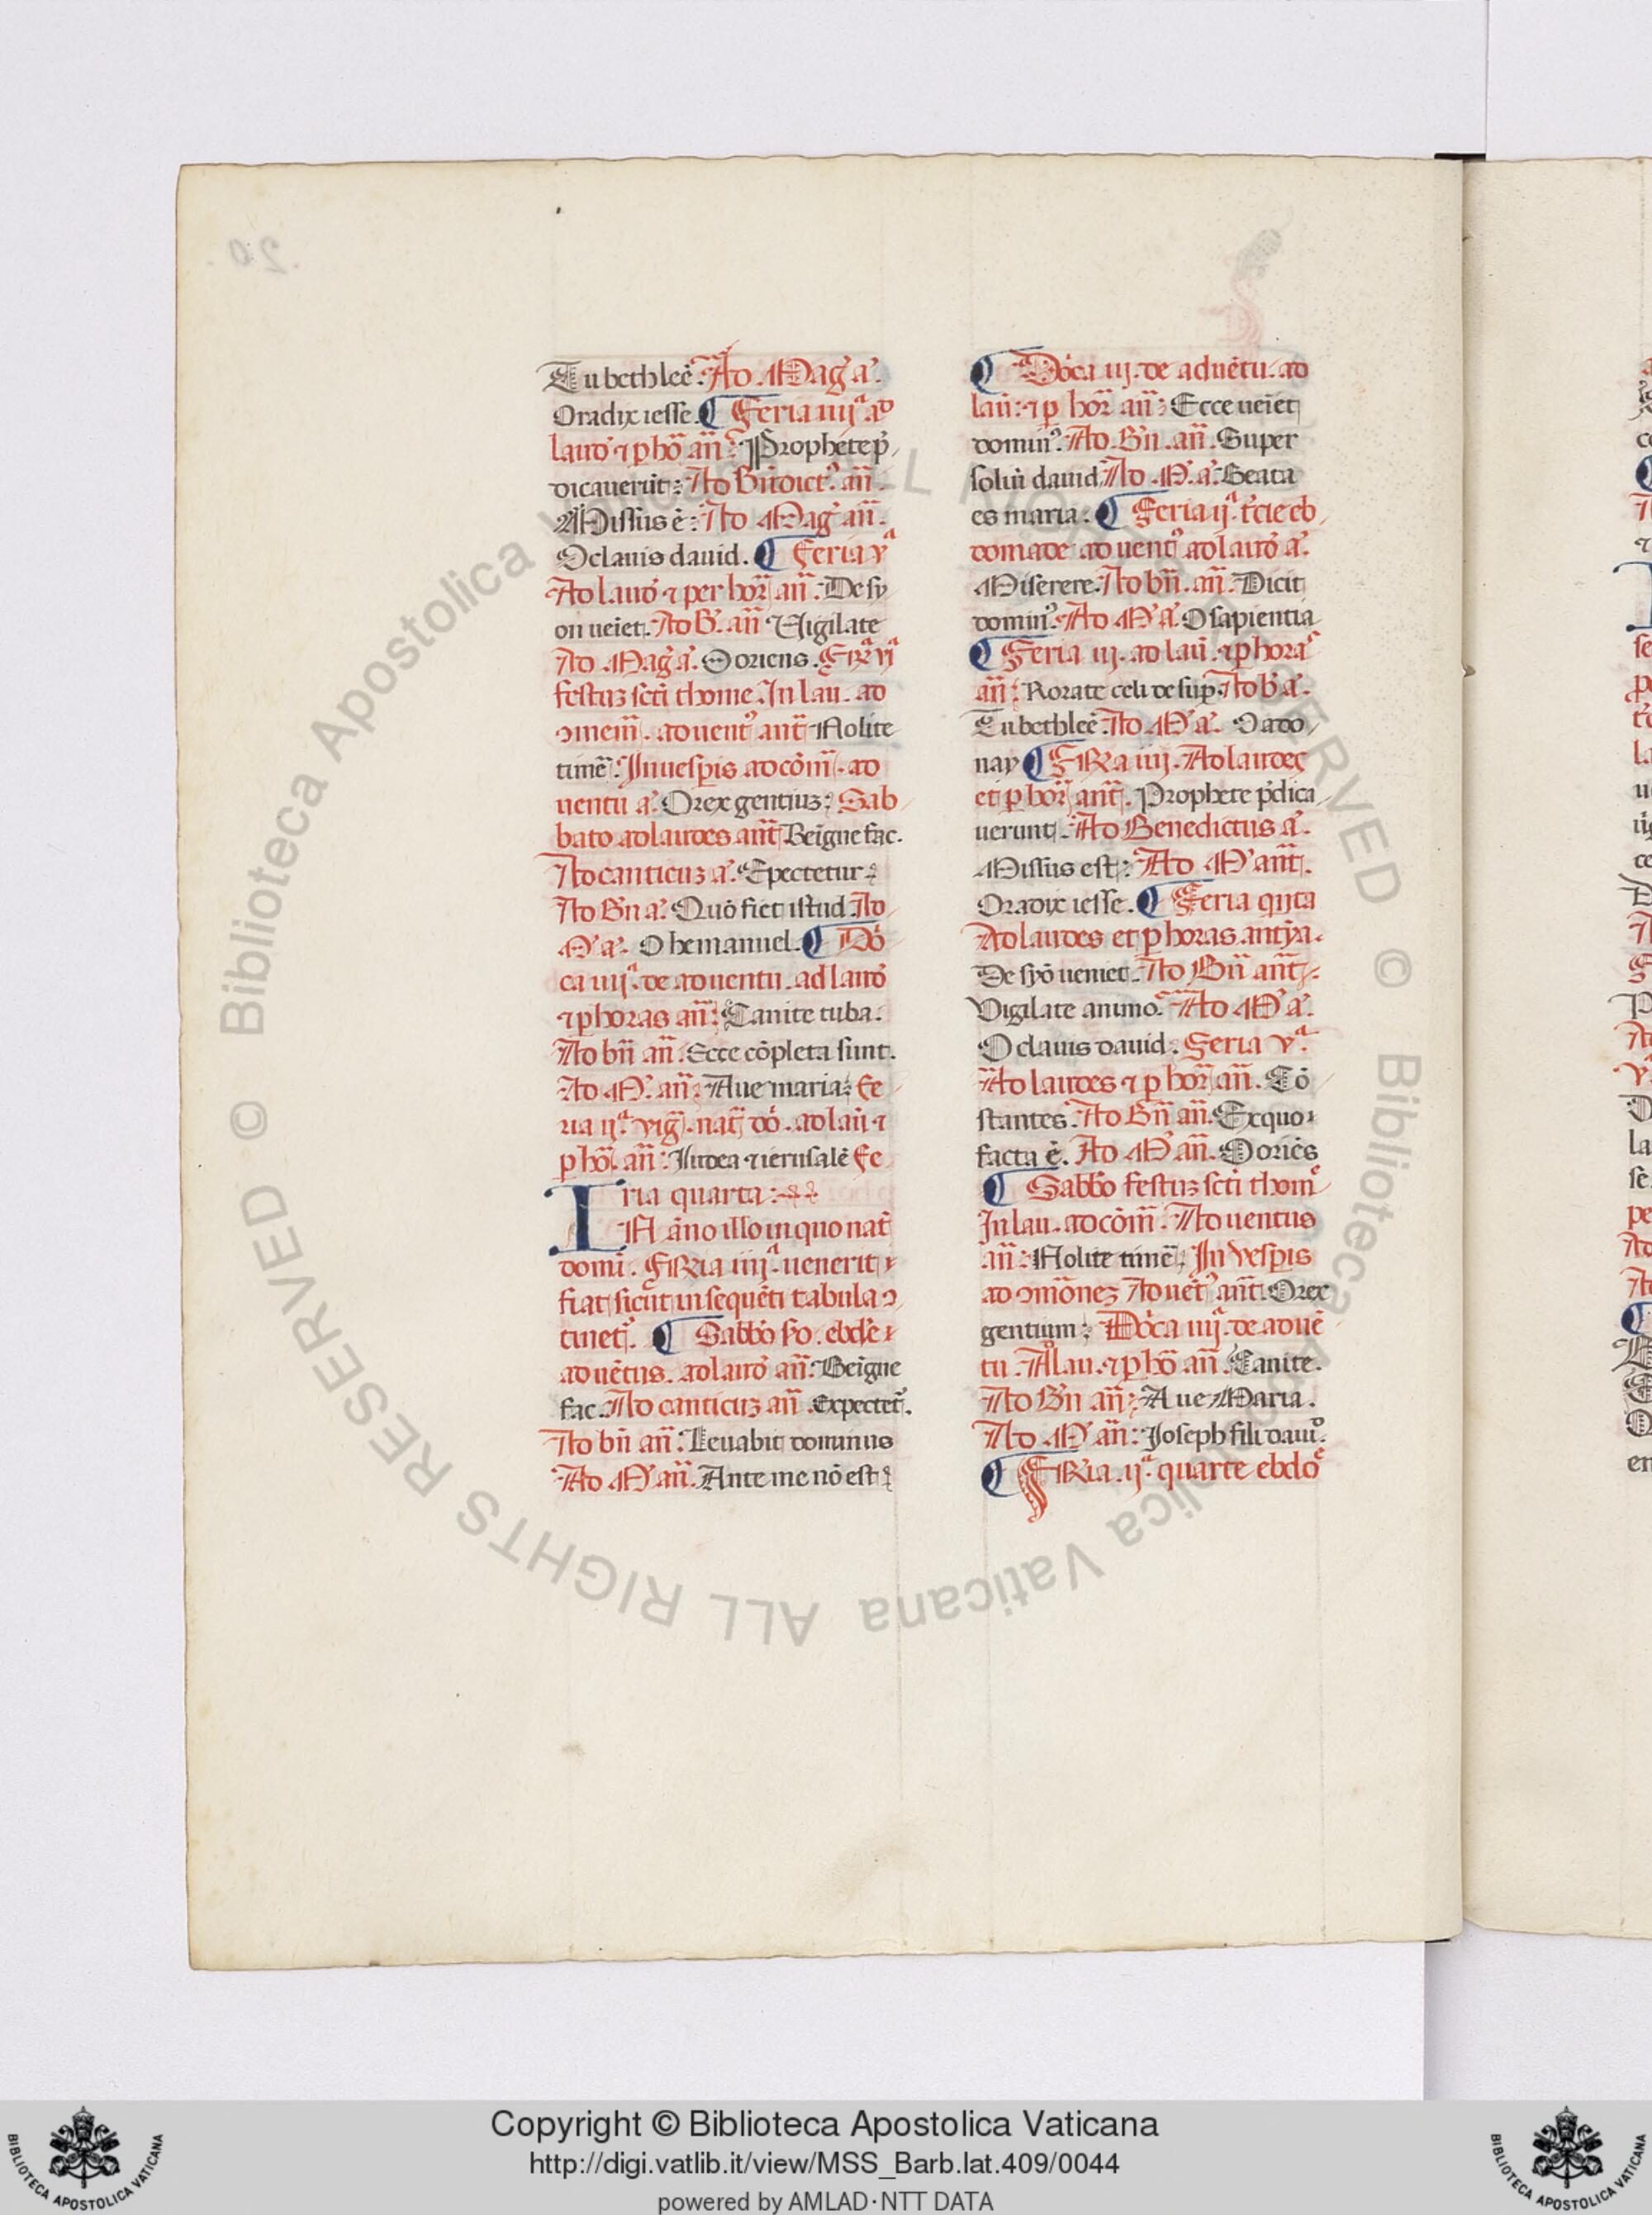 Tu bethleẽ. Ad. Mag̃ a͂.
O radix iesse. ¶ Feria iiijª ad
laud̃ ⁊ p ho᷒ an̄. Prophete p̃
dicauerūt: Ad Bn̄dict᷒. an̄.
Missus ē: Ad Mag̃ an̄.
O clauis dauid. ¶ Feria vª
Ad laud̃ ⁊ per hor̃ an̄: De sy
on ueiet. Ad B. an̄ Vigilate
Ad Mag̃ a͂. O oriens. Fr̃a vjª
festuz sc̄i thome. In lau. ad
ꝯmem̄. aduent᷒ ant̄ Nolite
timē: In uesp̃is ad cōm̄. ad
uentu a͂. O rex gentiuz: Sab
bato ad laudes ant̄ Beīgne fac.
Ad canticuz a͂. Expectetur
Ad Bn̄ a͂. Quō fiet istud. Ad
M͂ a͂. O hemanuel. ¶ Dō
ca iiijª. de aduentu. ad laud̃
⁊ p horas an̄: Canite tuba.
Ad bn̄ an̄. Ecce cōpleta sunt.
Ad M͂. an̄: Aue maria: fe
ria ijª. vig̃. nat̄ dō. ad lau̇ ⁊
p ho᷒. an̄: Iudea ⁊ ierusalē fe
ria quarta:
IN āno illo in quo nat̃
domī. FRia iiijª. uenerit
fiat sicut in sequēti tabula ꝯ
tinet᷒. ¶ Sabb̄o s̄o. ebd̄e
aduētus. ad laud̃ an̄: Beīgne
fac. Ad canticuz an̄. Expectet᷒.
Ad bn̄ an̄: Leuabit dominus
Ad M͂ an̄. Ante me nō est
¶ Dōca iij. de aduētu. ad
lau̇: ⁊ p hor̃ an̄: Ecce ueiet
domin᷒. Ad. Bn̄. an̄. Super
soliū dauid. Ad. M͂. a͂. Beata
es maria. ¶ Feria ijª. t̃cie eb
domade aduent᷒ ad laud̃ a͂.
Miserere. Ad bn̄. an̄. Dicit
domin᷒. Ad M͂ a͂. O sapientia
¶ Feria iij. ad lau̇. ⁊ p hora᷒
an̄: Rorate celi desup̃. Ad b̃ a͂.
Tu bethleẽ. Ad M͂ a͂. O ado
nay ¶ FRia iiij. Ad laudes
et p hor̃ ant̄. Prophete p̃dica
uerunt. Ad Benedictus a͂.
Missus est: Ad M͂ ant̄.
O radix iesse. ¶ Feria qn̄ta
Ad laudes et p horas. antỹa.
De syō ueniet. Ad Bn̄ ant̄
Vigilate animo. Ad M͂ a͂.
O clauis dauid. Feria vª
Ad laudes ⁊ p hor̃ an̄. Cō
stantes. Ad Bn̄ an̄. Ex quo
facta ē. Ad M͂ an̄. O oriēs
¶ Sabb̄o festuz sc̄i thom̃
In lau. ad cōm̄. Aduentus
an̄: Nolite timē: In vesp̃is
ad ꝯmōnez Aduēt᷒ ant̄. O rex
gentium: Dōca iiijª. de aduē
tu. Ad lau. ⁊ p ho᷒ an̄. Canite.
Ad Bn̄ an̄: Aue Maria.
Ad M͂ an̄: Ioseph fili dauid.
¶ FRia. ijª. quarte ebdo᷒
Copyright © Biblioteca Apostolica Vaticana
http://digi.vatlib.it/view/MSS_Barb.lat.409/0044
powered by AMLAD·NTT DATA